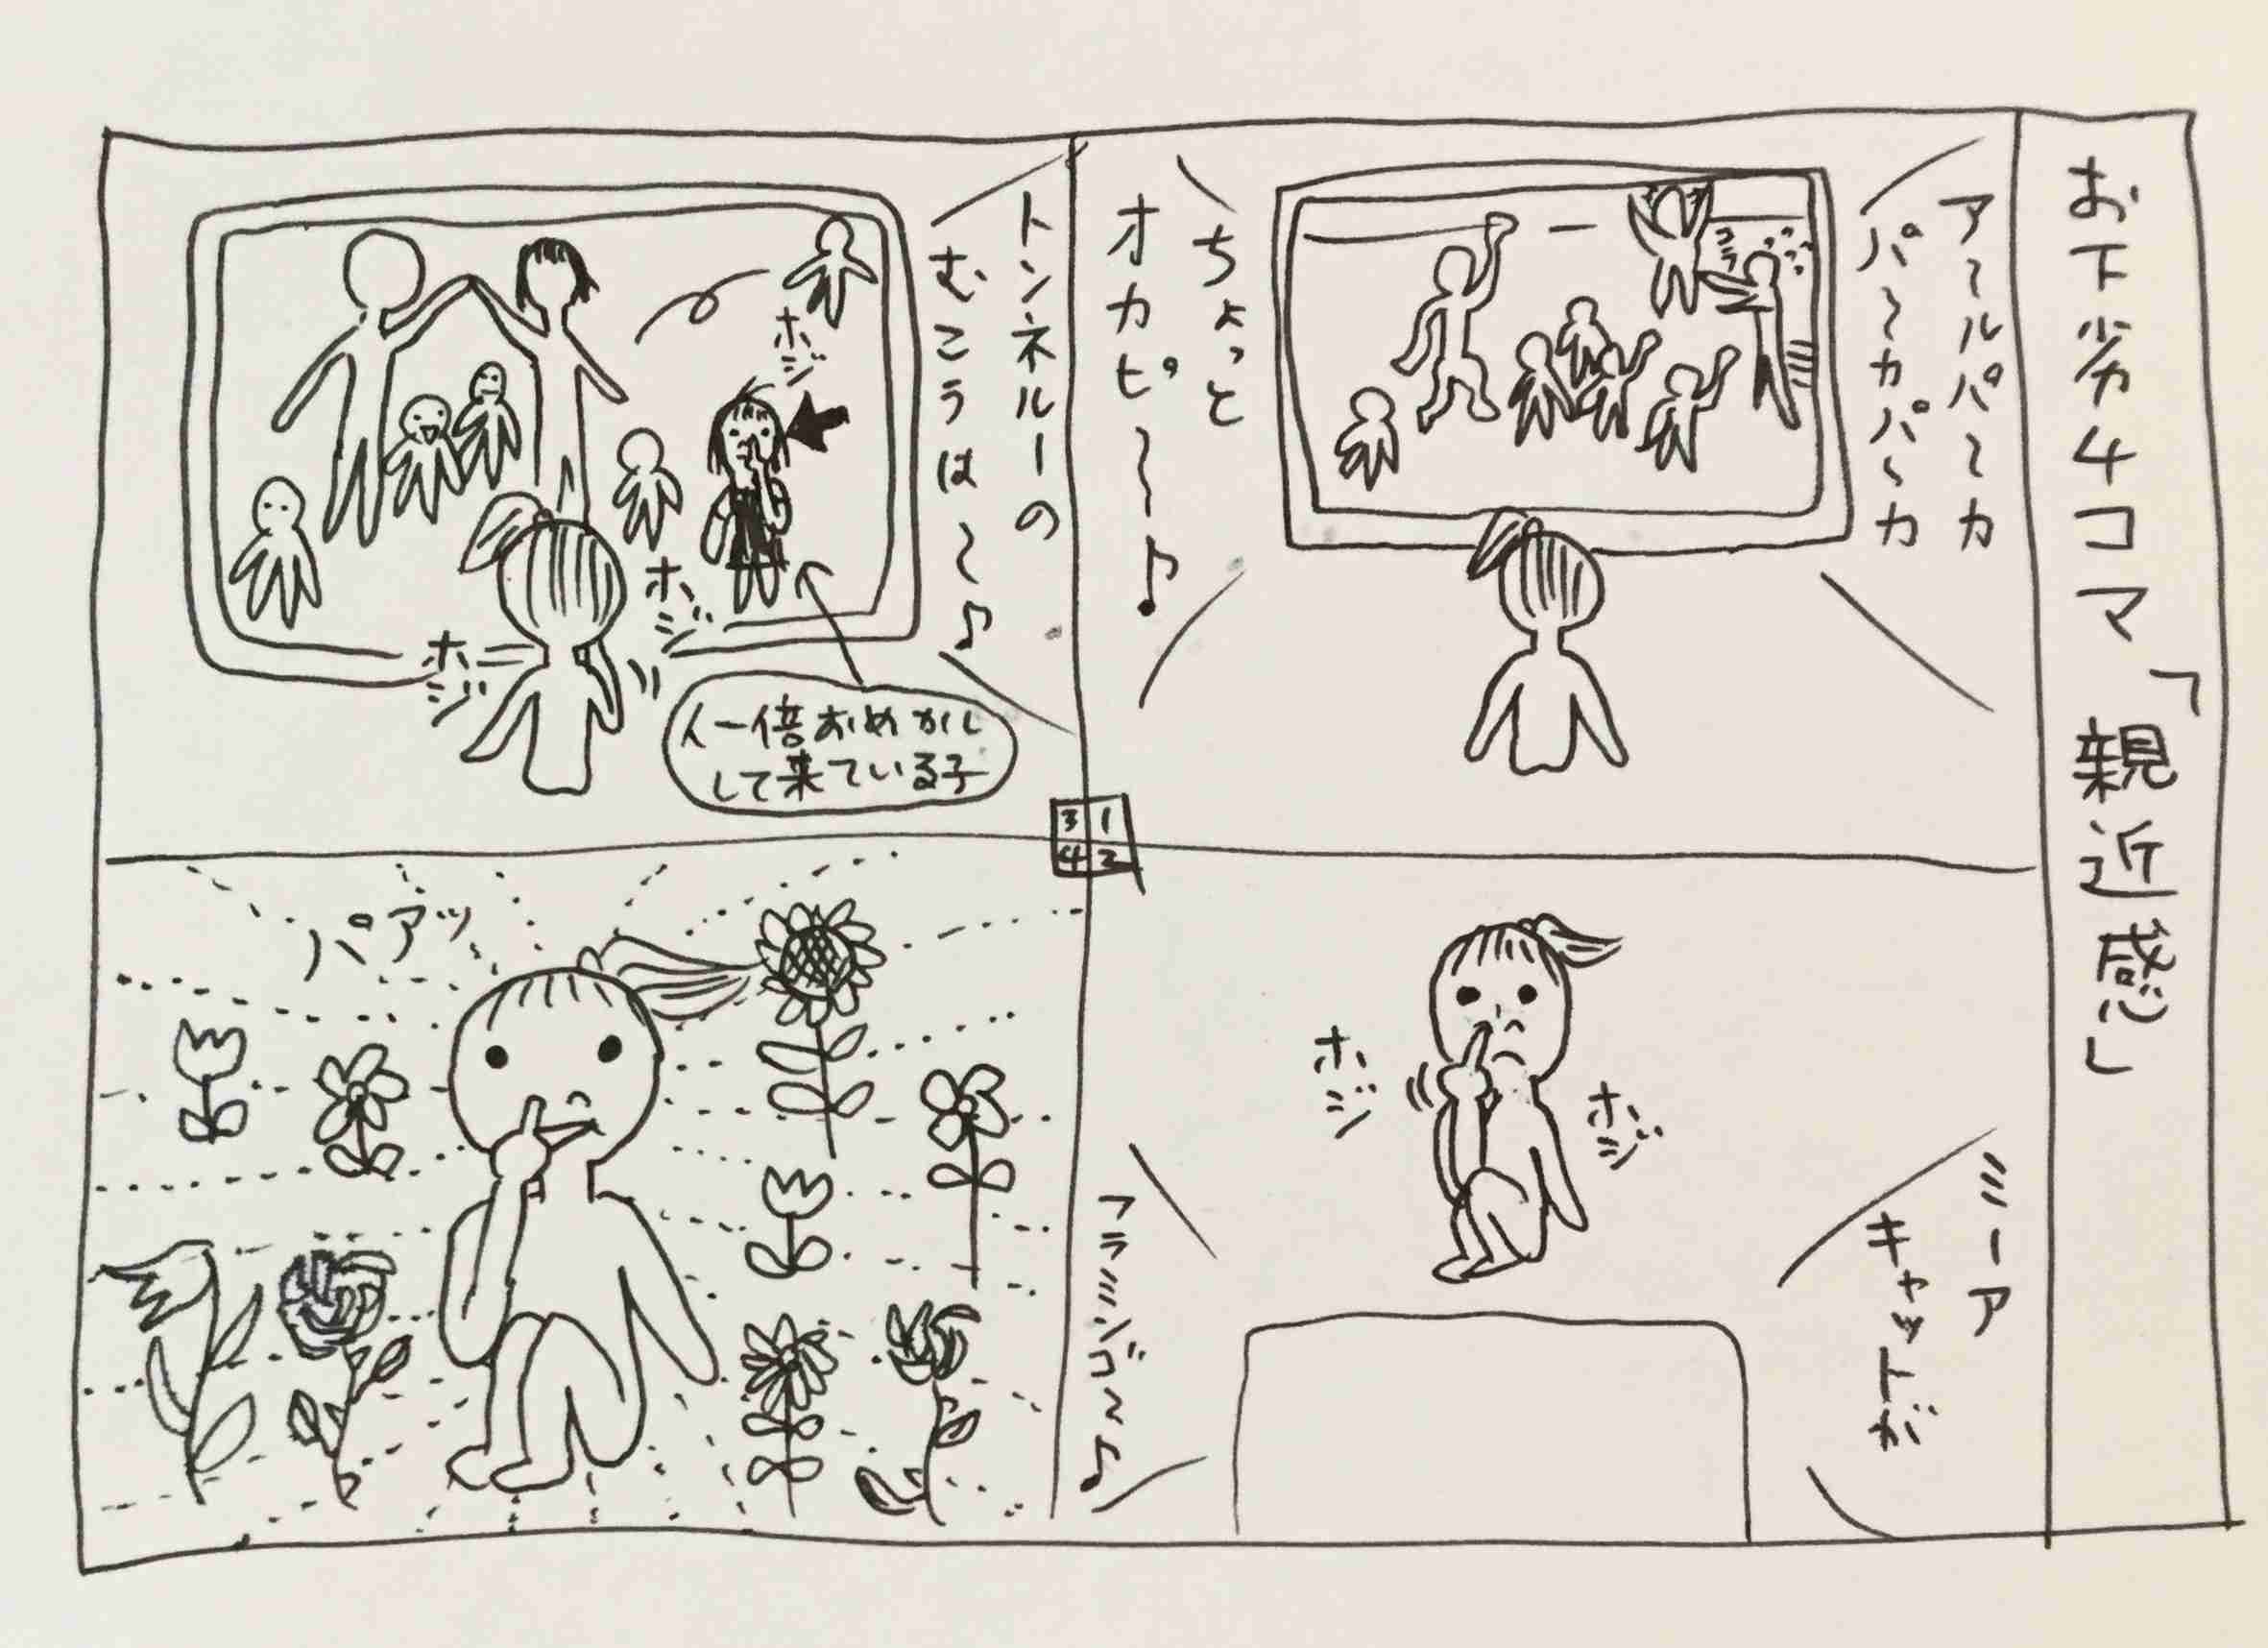 お下劣4コマ「親近感」
ア〜ルパ〜カ
パ〜カパ〜カ
ちょっと
オカピ〜♪
ミーア
キャットが
ホジ
ホジ
フラミンゴ〜♪
トンネルーの
むこうは〜♪
ホジ
ホジ
ホジ
人一倍おめかし
して来ている子
パアッ
3 1
4 2